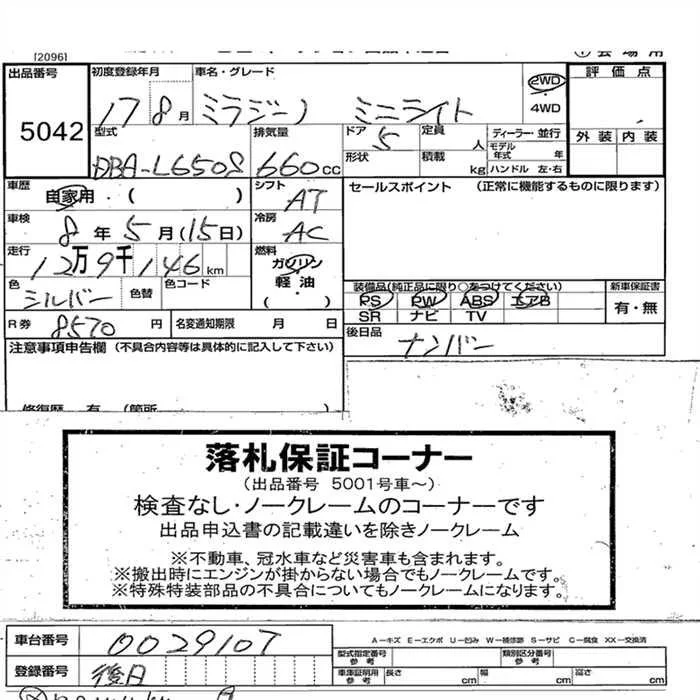 [2096]
会場用
出品番号 初度登録年月 車名・グレード 2WD 評価点
5042 17 8月 ミラジーノ ミニライト 4WD
型式 排気量 ドア 定員 ディーラー・並行 外装 内装
DBA-L650S 660cc 5 人 モデル年式 年
形状 積載 kg ハンドル 左・右
車歴 自家用・( ) シフト AT セールスポイント (正常に機能するものに限ります)
車検 8年5月(15日) 冷房 AC
走行 12万9千146km 燃料 ガソリン
色 シルバー 色替 色コード 軽油・( )
装備品(純正品に限り○をつけてください) 新車保証書
PS PW ABS エアB 有・無
SR ナビ TV
R券 8570円 名変通知期限 月 日 後日品 ナンバー
注意事項申告欄 (不具合内容等は具体的に記入して下さい)
修復歴 有 (箇所
落札保証コーナー
(出品番号 5001号車~)
検査なし・ノークレームのコーナーです
出品申込書の記載違いを除きノークレーム
※不動車、冠水車など災害車も含まれます。
※搬出時にエンジンが掛からない場合でもノークレームです。
※特殊特装部品の不具合についてもノークレームになります。
車台番号 0029107 A-キズ E-エクボ U-凹み W-補修跡 S-サビ C-腐食 XX-交換済
型式指定番号 参考 類別区分番号 参考
登録番号 後日 車庫証明用 参考 長さ cm 幅 cm 高さ cm